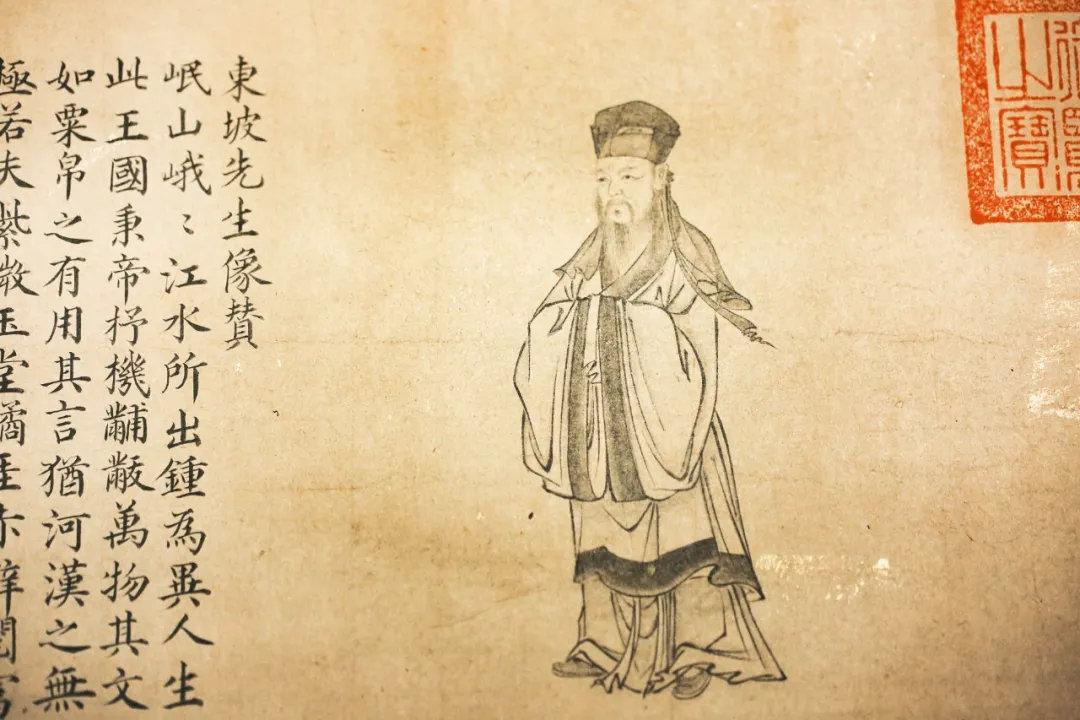 之寶
東坡先生像贊
岷山峨〻江水所出鍾為異人生
此王國秉帝杼機黼黻萬物其文
如粟帛之有用其言猶河漢之無
極若夫紫微玉堂瓊崖赤壁閱富